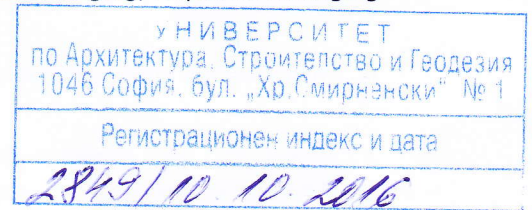 УНИВЕРСИТЕТ
по Архитектура, Строителство и Геодезия
1046 София, бул. „Хр.Смирненски" № 1
Регистрационен индекс и дата
2849/10.10.2016